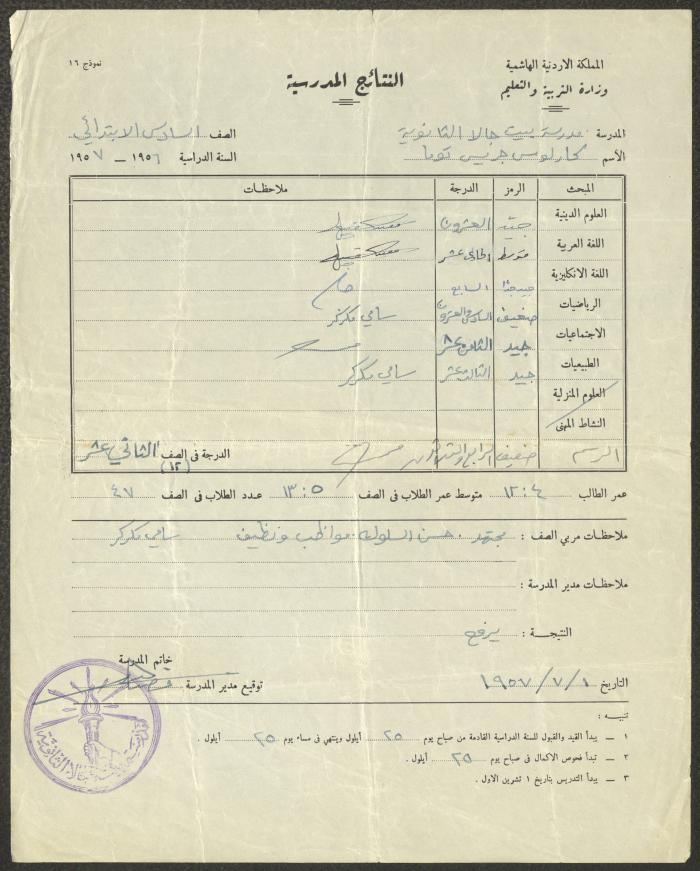 المملكة الاردنية الهاشمية
وزارة التربية والتعليم
النتائج المدرسية
نموذج ١٦
المدرسة مدرسة بيت جالا الثانوية الصف السادس الابتدائي
الأسم كارلوس جريس توما السنة الدراسية ١٩٥٦ – ١٩٥٧
المبحث الرمز الدرجة ملاحظات
العلوم الدينية جيد العشرون
اللغة العربية متوسط الحادي عشر
اللغة الانكليزية جيد جدا السابع
الرياضيات ضعيف السادس والعشرون سامي مكركر
الاجتماعيات جيد الثامن عشر
الطبيعيات جيد الثالث عشر سامي مكركر
العلوم المنزلية
النشاط المهني
الرسم ضعيف الرابع والثلاثون
الدرجة فى الصف الثاني عشر (١٢)
عمر الطالب ١٢:٤ متوسط عمر الطلاب فى الصف ١٣:٥ عدد الطلاب فى الصف ٤٧
ملاحظات مربي الصف : مجتهد . حسن السلوك . مواظب ونظيف سامي مكركر
ملاحظات مدير المدرسة :
النتيجة : يرفع
خاتم المدرسة
التاريخ ١٩٥٧/٧/١ توقيع مدير المدرسة
تنبيه :
١ — يبدأ القيد والقبول للسنة الدراسية القادمة من صباح يوم ٢٥ أيلول وينتهي فى مساء يوم ٢٥ أيلول .
٢ — تبدأ فحوص الاكمال فى صباح يوم ٢٥ أيلول .
٣ — يبدأ التدريس بتاريخ ١ تشرين الاول .